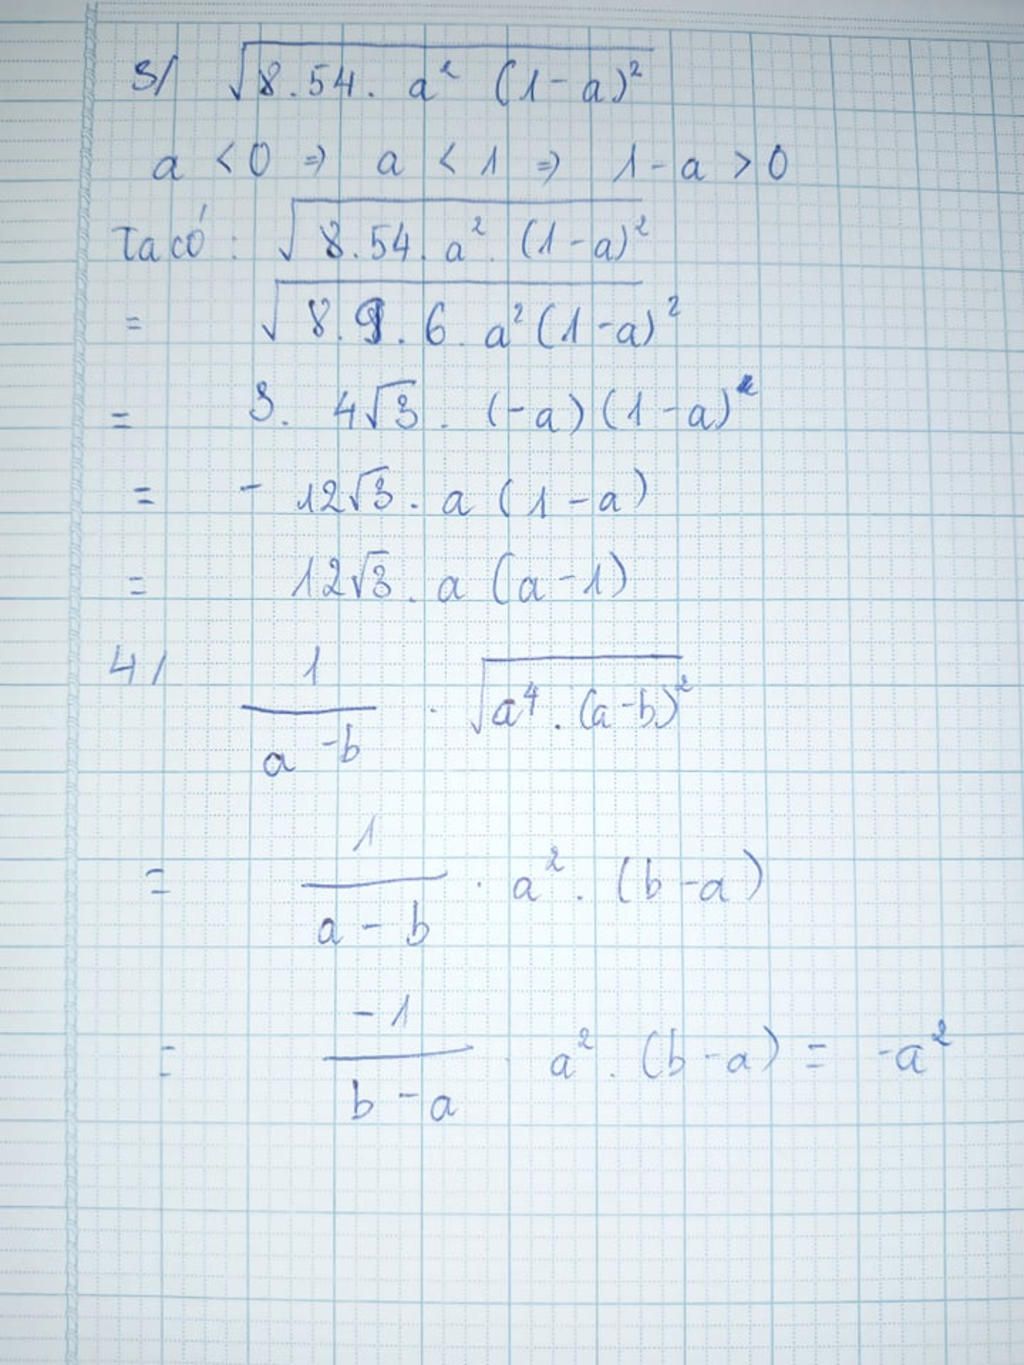 3/ √8.54. a² (1-a)²
a < 0 ⇒ a < 1 ⇒ 1-a > 0
Ta có: √8.54. a². (1-a)²
= √8.9.6. a² (1-a)²
= 3. 4√3. (-a) (1-a)
= - 12√3. a (1-a)
= 12√3. a (a-1)
4/ 1/(a-b) . √a⁴. (a-b)²
= 1/(a-b) . a². (b-a)
= -1/(b-a) . a². (b-a) = -a²